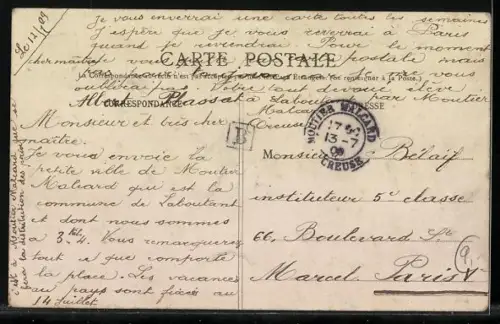 Le 12/7 09
Je vous enverrai une carte toutes les semaines
J'espère que je vous reverrai à Paris
quand je reviendrai. Pour le moment
cher maître vous
postale mais
CARTE POSTALE
La Correspondance
n'est pas
(se renseigner à la Poste.)
vous
oublierai pas Votre tout dévoué élève
Albert Plassat à Laboutant par Moutier
Malcard
Creuse
CORRESPONDANCE
ADRESSE
Monsieur et très cher
maître.
Je vous envoie la
petite ville de Moutier
Malcard qui est la
commune de Laboutant
et dont nous sommes
à 3 kil. 4. Vous remarquerez
tout ce que comporte
la place. Les vacances
au pays sont fixées au
14 Juillet
c'est à Moutier Malcard que se
fera la distribution des prix
B
MOUTIER MALCARD
13 -7
09
CREUSE
Monsieur Belaif
instituteur 5e classe
66, Boulevard St
Marcel Paris V